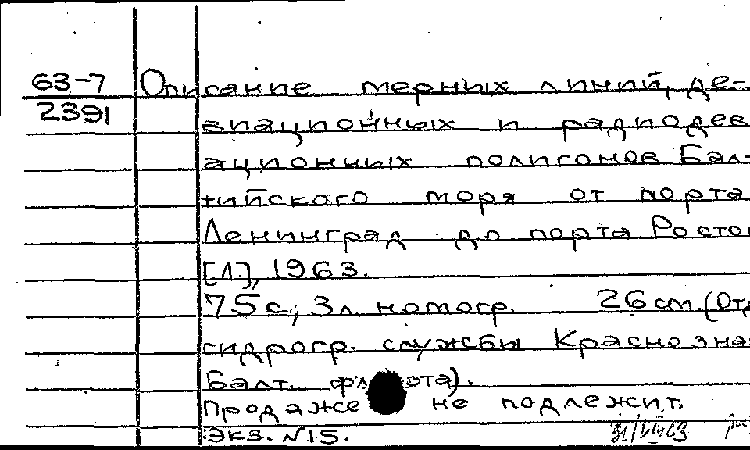 63-7
2391
Описание мерных линий, де-
виационных и радиодев
ационных полигонов Бал-
тийского моря от порта
Ленинград до порта Росто
[Л], 1963.
75 с., 3 л. номогр. 26 см. (Отд
гидрогр. службы Краснозна
Балт. флота).
Продаже не подлежит.
Экз. №15.
31/VIII 63